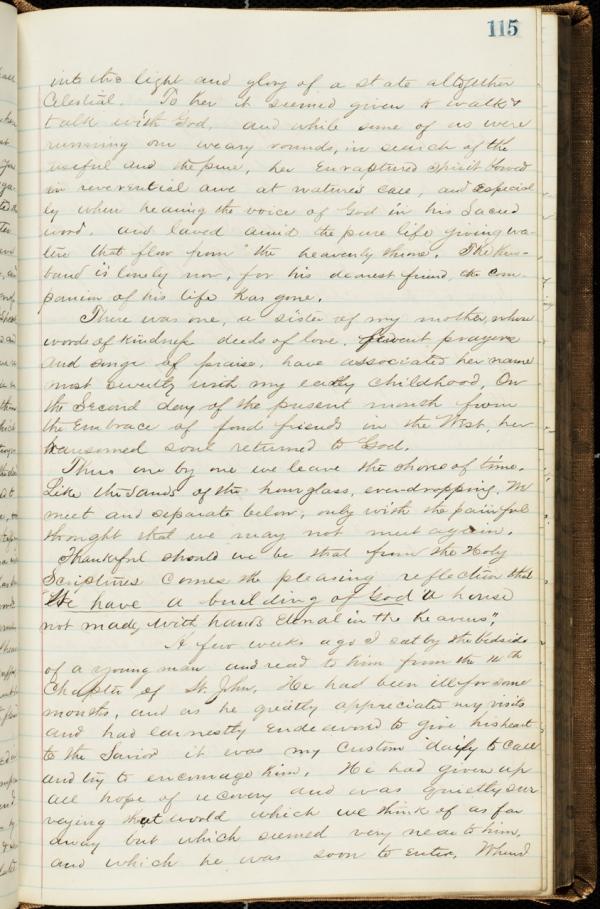 115
into the light and glory of a state altogether
Celestial. To her it seemed given to walk &
talk with God. and while some of us were
running our weary rounds, in search of the
useful and the pure, her Enraptured spirit bowed
in reverential awe at natures call, and especial
ly when hearing the voice of God in his Sacred
word, and laved amid the pure life giving wa-
ters that flow from the heavenly throne. The hus-
band is lonely now, for his dearest friend, the com-
panion of his life has gone.
There was one, a sister of my mother, whose
words of kindness deeds of love, fervent prayers
and songs of praise, have associated her name
most sweetly with my early childhood. On
the Second day of the present month from
the Embrace of fond friends in the West, her
ransomed soul returned to God.
Thus one by one we leave the shores of time.
Like the sands of the hourglass, ever dropping. We
meet and separate below, only with the painful
thought that we may not meet again.
Thankful should we be that from the Holy
Scriptures comes the pleasing reflection that
"We have a building of God a house
not made, with hands Eternal in the heavens".
A few weeks ago I sat by the bedside
of a young man and read to him from the
Chapter of St. John. He had been ill for some
months, and as he greatly appreciated my visits
and had earnestly Endeavored to give his heart
to the Savior it was my custom daily to call
and try to encourage him. He had given up
all hope of recovery and was quietly sur
veying that world which we think of as far
away but which seemed very near to him,
and which he was soon to enter. When I